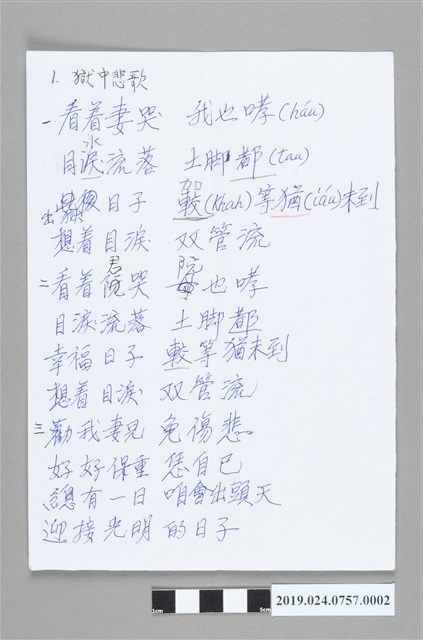 1. 獄中悲歌
一 看着妻哭 我也哮(háu)
水
目淚流落 土脚都(tau)
加
出獄後日子 較(khah)等猶(iáu)未到
想着目淚 双管流
君 阮
二 看着阮哭 母也哮
目淚流落 土脚都
幸福日子 較等猶未到
想着目淚 双管流
三 勸我妻兒 免傷悲
好好保重 恁自已
總有一日 咱會出頭天
迎接光明 的日子
1cm 5cm
2019.024.0757.0002